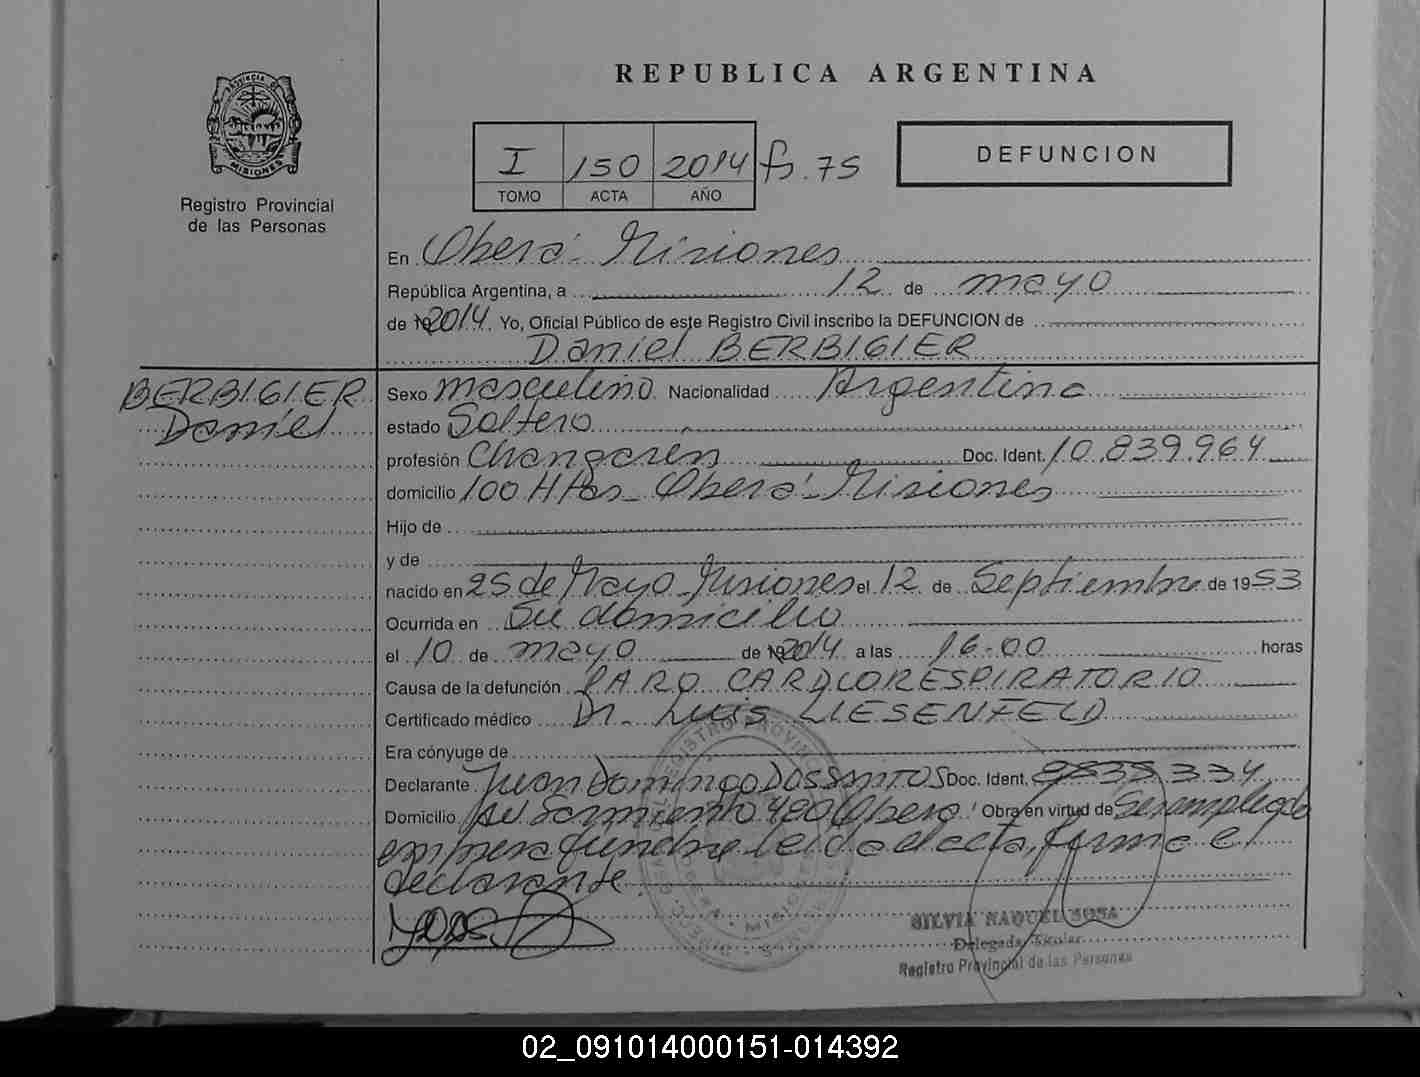 REPUBLICA ARGENTINA
PROVINCIA DE
MISIONES
Registro Provincial
de las Personas
I 150 2014 fs. 75
TOMO ACTA AÑO
DEFUNCION
En Oberá - Misiones
República Argentina, a 12 de mayo
de 2014. Yo, Oficial Público de este Registro Civil inscribo la DEFUNCION de
Daniel BERBIGIER
BERBIGIER
Daniel
Sexo masculino Nacionalidad Argentina
estado Soltero
profesión Changarín Doc. Ident. 10.839.964
domicilio 100 Htas - Oberá - Misiones
Hijo de
y de
nacido en 25 de Mayo - Misiones el 12 de Septiembre de 1953
Ocurrida en Su domicilio
el 10 de mayo de 2014 a las 16-00 horas
Causa de la defunción PARO CARDIORESPIRATORIO
Certificado médico Dr. Luis LIESENFELD
Era cónyuge de
Declarante Juan Domingo DOS SANTOS Doc. Ident. 334
Domicilio Av Sarmiento 480 Oberá Obra en virtud de Ser empleado
empresa fúnebre leída el acta, firma el
declarante
SILVIA RAQUEL SOSA
Delegada Titular
Registro Provincial de las Personas
02_091014000151-014392